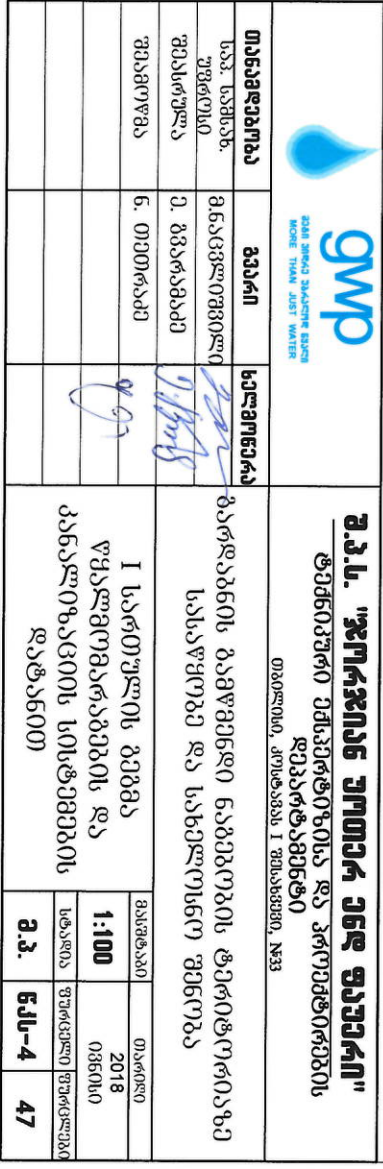 gwp
მეტი ვიდრე უბრალოდ წყალი
MORE THAN JUST WATER
შ.პ.ს. "ჯორჯიან უოთერ ენდ ფაუერი"
ტექნიკური ექსპერტიზისა და პროექტირების
დეპარტამენტი
თბილისი, კოსტავას I შესახვევი, №33
თანამდებობა გვარი ხელმოწერა
საპ. სამსახ.
უფროსი
მ.ნაცვლიშვილი
შეასრულა ე. გვარამაძე
შეამოწმა ნ. თეთრაძე
გარდაბნის გამწმენდი ნაგებობის ტერიტორიაზე
სასაწყობე და სახელოსნო შენობა
I სართულის გეგმა
წყალმომარაგების და
კანალიზაციის სისტემების
დატანით
მასშტაბი თარიღი
1:100 2018
ივნისი
სტადია ფურცელი ფურცლები
მ.პ. ნკს-4 47